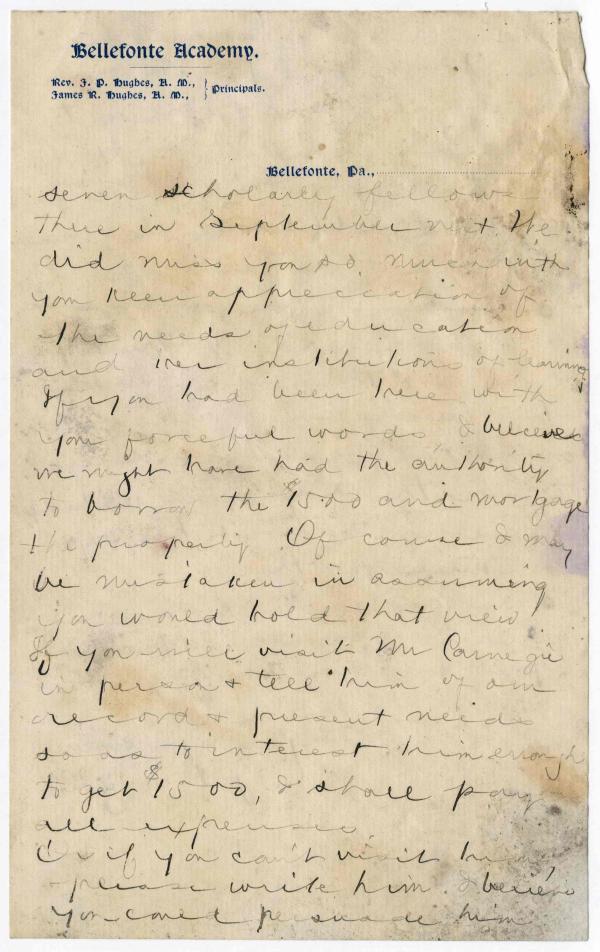 Bellefonte Academy.
Rev. J. P. Hughes, A. M.,
James R. Hughes, A. M.,
Principals.
Bellefonte, Pa.,
seven scholarly fellows
there in September next. We
did miss you so much with
your keen appreciation of
the needs of education
and her institutions of learning
If you had been here with
your forceful words, I believe
we might have had the authority
to borrow the $1500 and mortgage
the property. Of course I may
be mistaken in assuming
you would hold that view
If you will visit Mr Carnegie
in person & tell him of our
record & present needs
so as to interest him enough
to get $1500, I shall pay
all expenses.
Or if you can't visit him
please write him. I believe
you could persuade him